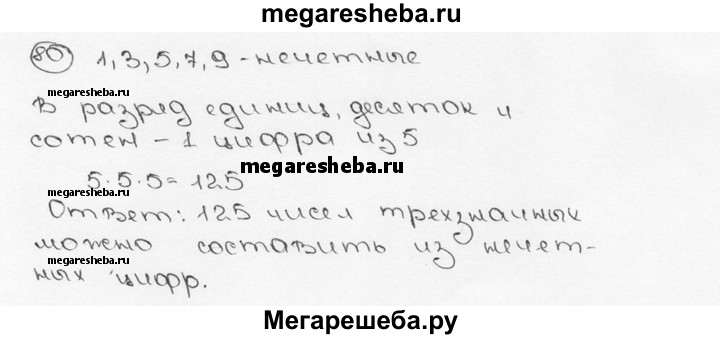 megaresheba.ru
80 1,3,5,7,9 - нечетные
megaresheba.ru
В разряд единиц, десяток и
сотен - 1 цифра из 5
megaresheba.ru
5·5·5=125
megaresheba.ru
Ответ: 125 чисел трехзначных
можно составить из нечет-
megaresheba.ru
ных цифр.
Мегарешеба.ру